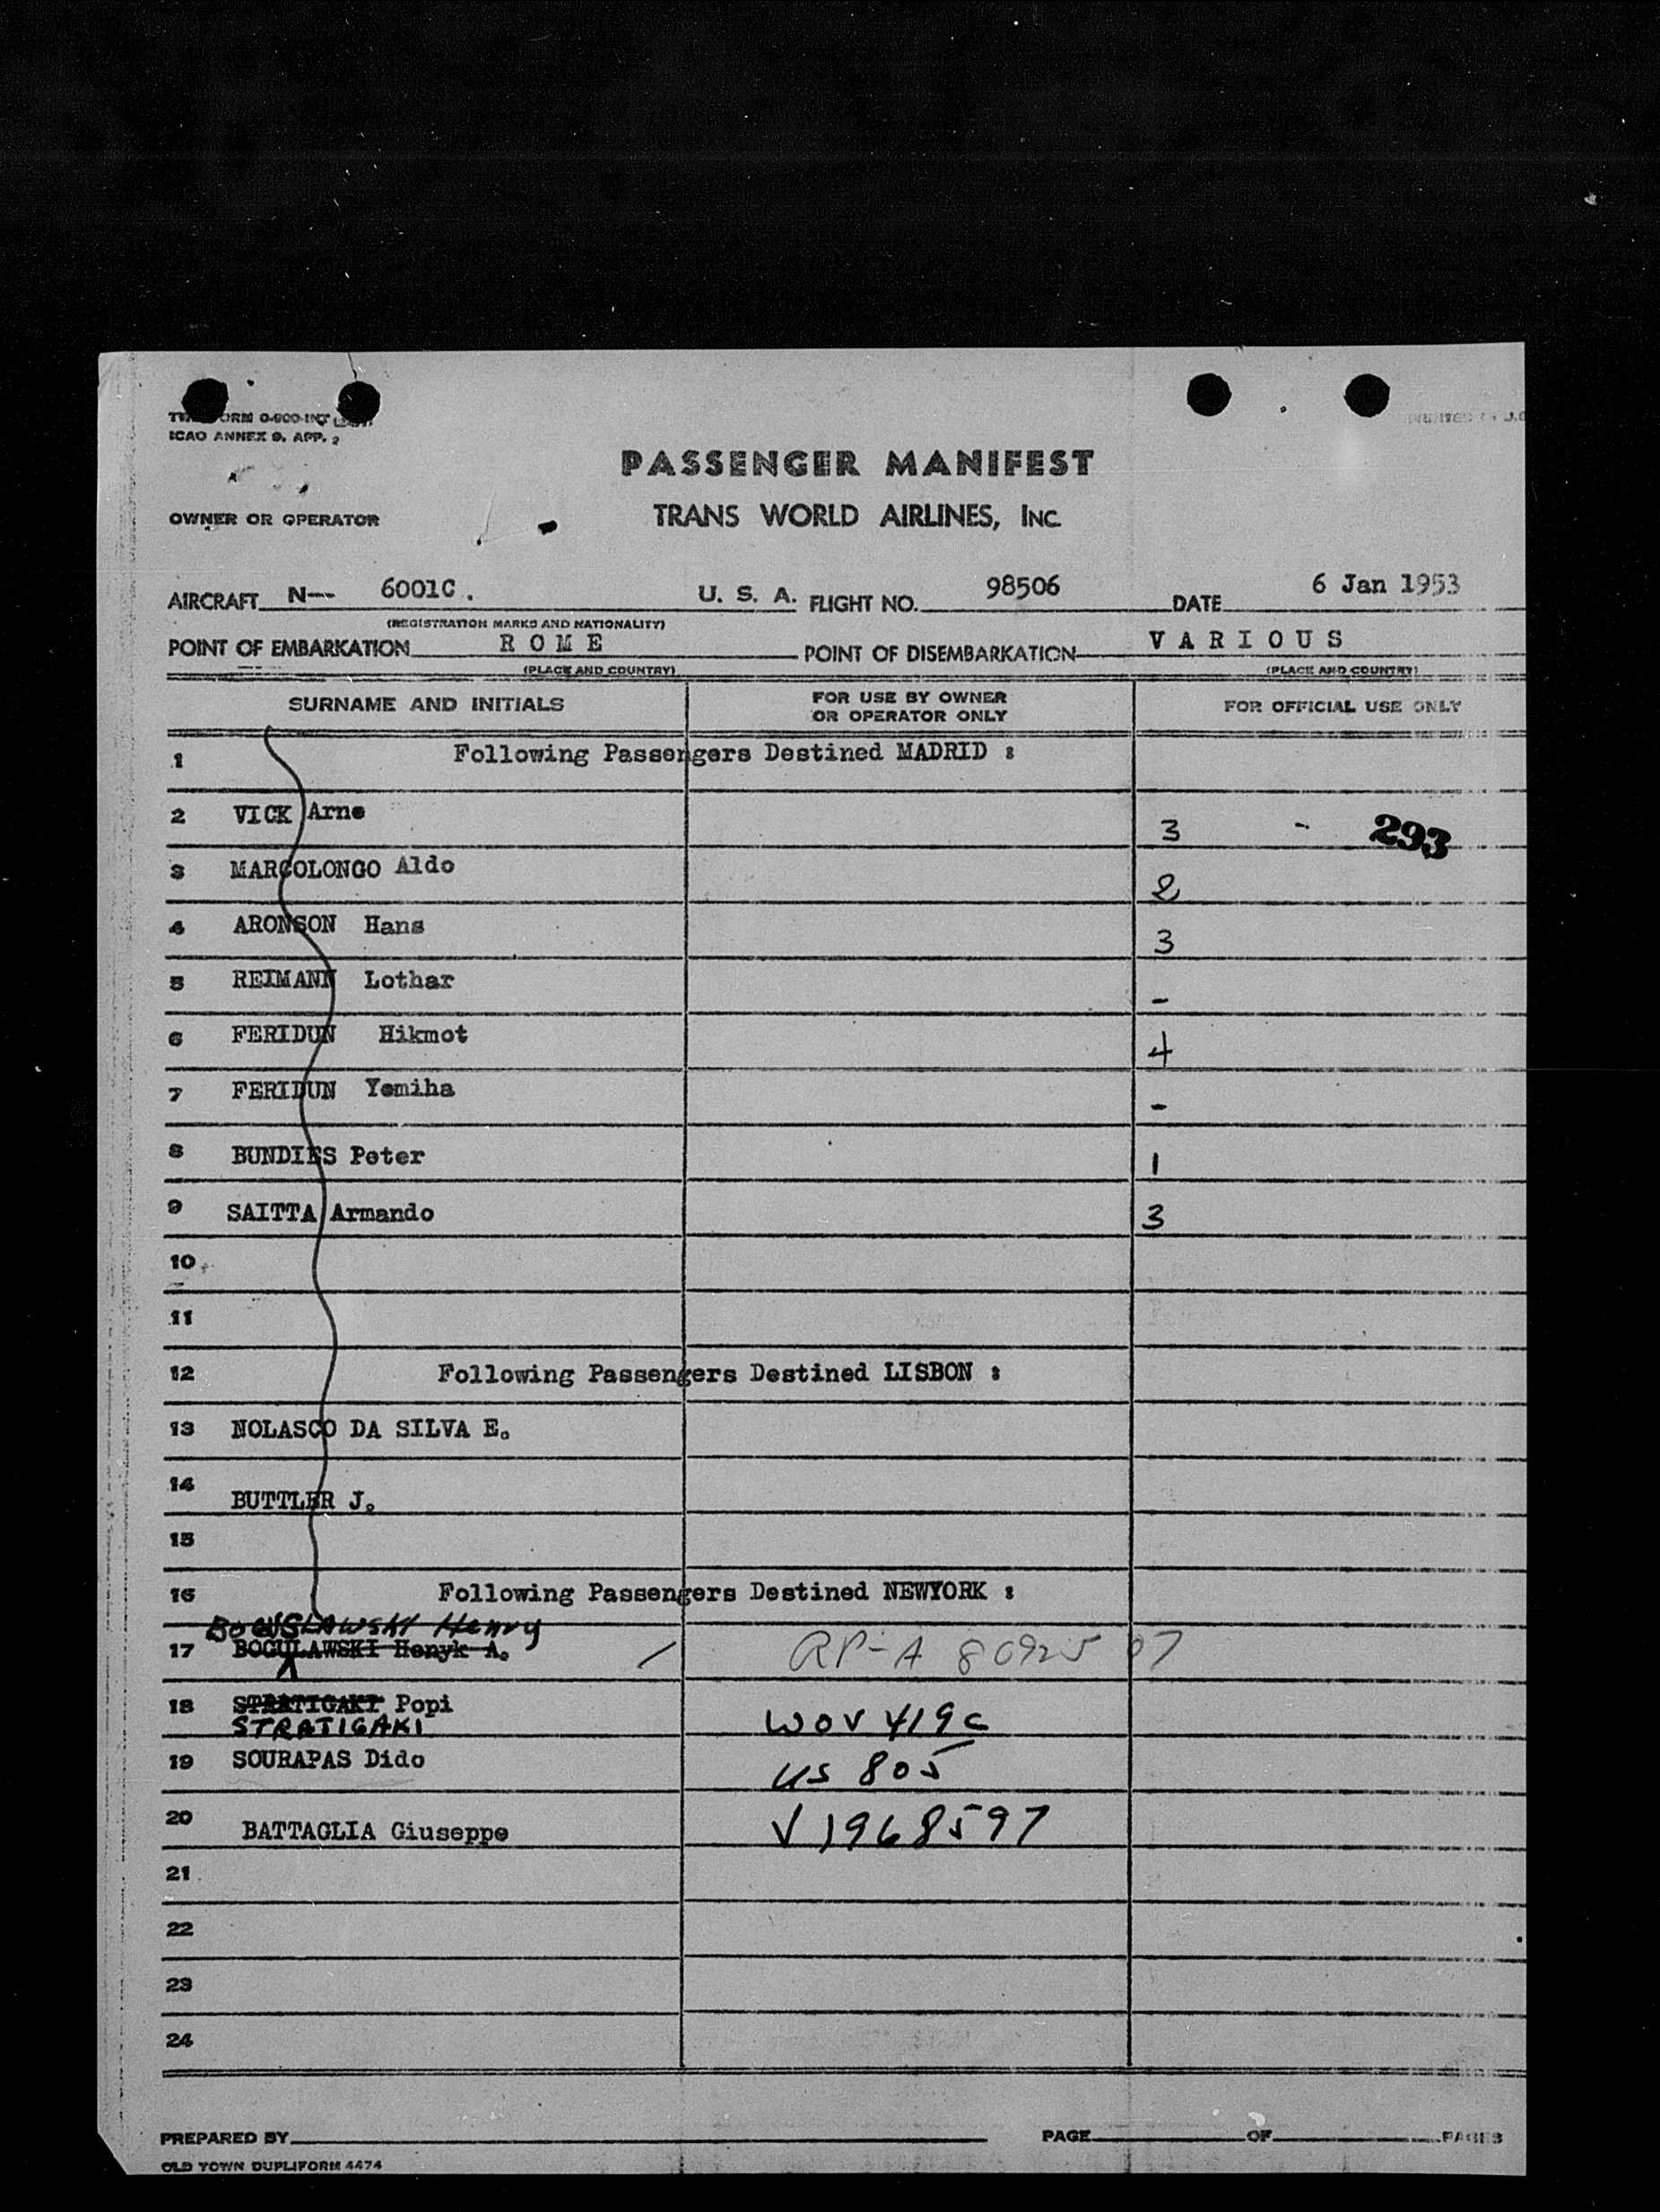 ICAO ANNEX 9, APP. 2
PASSENGER MANIFEST
OWNER OR OPERATOR TRANS WORLD AIRLINES, INC.
AIRCRAFT N-- 6001C. U. S. A. FLIGHT NO. 98506 DATE 6 Jan 1953
(REGISTRATION MARKS AND NATIONALITY)
POINT OF EMBARKATION R O M E POINT OF DISEMBARKATION V A R I O U S
(PLACE AND COUNTRY) (PLACE AND COUNTRY)
SURNAME AND INITIALS FOR USE BY OWNER OR OPERATOR ONLY FOR OFFICIAL USE ONLY
1 Following Passengers Destined MADRID :
2 VICK Arne 3 - 293
3 MARCOLONGO Aldo 2
4 ARONSON Hans 3
5 REIMANN Lothar -
6 FERIDUN Hikmot 4
7 FERIDUN Yemiha -
8 BUNDIES Peter 1
9 SAITTA Armando 3
10
11
12 Following Passengers Destined LISBON :
13 NOLASCO DA SILVA E.
14 BUTTLER J.
15
16 Following Passengers Destined NEWYORK :
BOGUSLAWSKI Henry
17 BOGULAWSKI Henyk A. RP-A 80925 07
18 STRATIGAKI Popi
STRATIGAKI WOV 419c
19 SOURAPAS Dido US 805
20 BATTAGLIA Giuseppe V1968597
21
22
23
24
PREPARED BY PAGE OF PAGES
OLD TOWN DUPLIFORM 4474